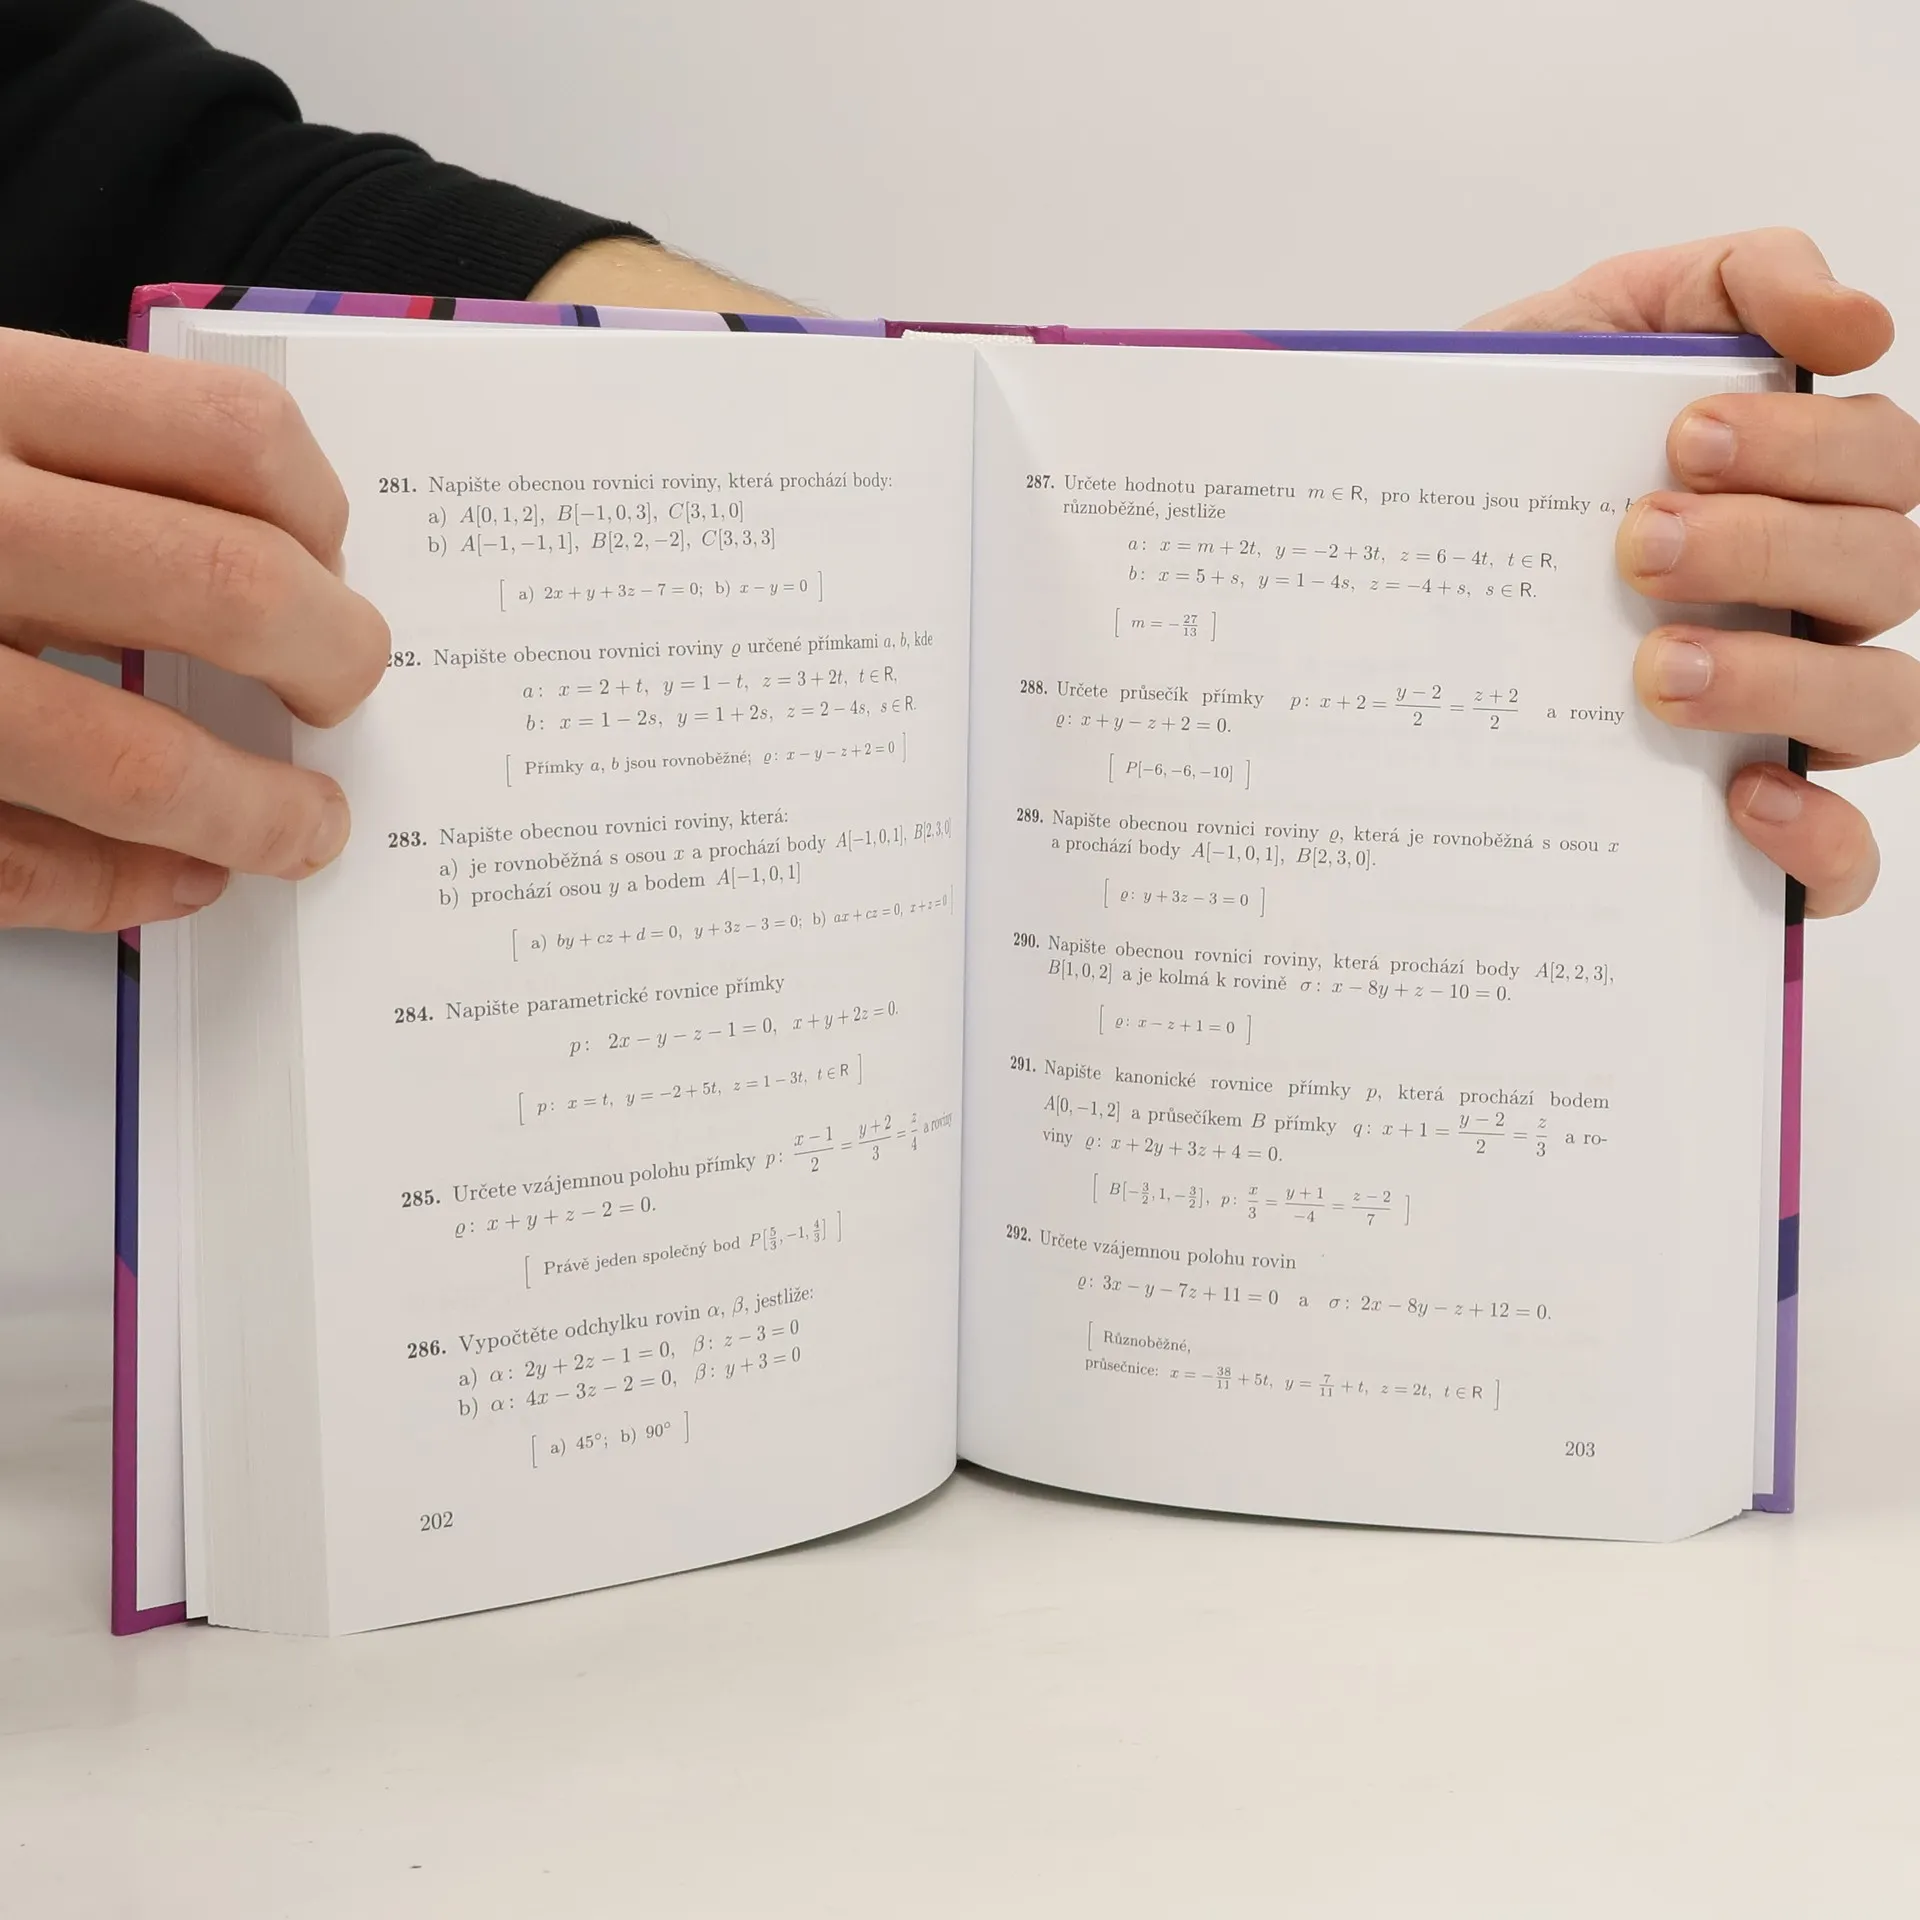 281. Napište obecnou rovnici roviny, která prochází body:
a) A[0, 1, 2], B[−1, 0, 3], C[3, 1, 0]
b) A[−1, −1, 1], B[2, 2, −2], C[3, 3, 3]
[ a) 2x + y + 3z − 7 = 0; b) x − y = 0 ]
282. Napište obecnou rovnici roviny ϱ určené přímkami a, b, kde
a: x = 2 + t, y = 1 − t, z = 3 + 2t, t ∈ R,
b: x = 1 − 2s, y = 1 + 2s, z = 2 − 4s, s ∈ R.
[ Přímky a, b jsou rovnoběžné; ϱ: x − y − z + 2 = 0 ]
283. Napište obecnou rovnici roviny, která:
a) je rovnoběžná s osou x a prochází body A[−1, 0, 1], B[2, 3, 0]
b) prochází osou y a bodem A[−1, 0, 1]
[ a) by + cz + d = 0, y + 3z − 3 = 0; b) ax + cz = 0, x + z = 0 ]
284. Napište parametrické rovnice přímky
p: 2x − y − z − 1 = 0, x + y + 2z = 0.
[ p: x = t, y = −2 + 5t, z = 1 − 3t, t ∈ R ]
285. Určete vzájemnou polohu přímky p: (x − 1)/2 = (y + 2)/3 = z/4 a roviny
ϱ: x + y + z − 2 = 0.
[ Právě jeden společný bod P[5/3, −1, 4/3] ]
286. Vypočtěte odchylku rovin α, β, jestliže:
a) α: 2y + 2z − 1 = 0, β: z − 3 = 0
b) α: 4x − 3z − 2 = 0, β: y + 3 = 0
[ a) 45°; b) 90° ]
202
287. Určete hodnotu parametru m ∈ R, pro kterou jsou přímky a, b
různoběžné, jestliže
a: x = m + 2t, y = −2 + 3t, z = 6 − 4t, t ∈ R,
b: x = 5 + s, y = 1 − 4s, z = −4 + s, s ∈ R.
[ m = −27/13 ]
288. Určete průsečík přímky p: x + 2 = (y − 2)/2 = (z + 2)/2 a roviny
ϱ: x + y − z + 2 = 0.
[ P[−6, −6, −10] ]
289. Napište obecnou rovnici roviny ϱ, která je rovnoběžná s osou x
a prochází body A[−1, 0, 1], B[2, 3, 0].
[ ϱ: y + 3z − 3 = 0 ]
290. Napište obecnou rovnici roviny, která prochází body A[2, 2, 3],
B[1, 0, 2] a je kolmá k rovině σ: x − 8y + z − 10 = 0.
[ ϱ: x − z + 1 = 0 ]
291. Napište kanonické rovnice přímky p, která prochází bodem
A[0, −1, 2] a průsečíkem B přímky q: x + 1 = (y − 2)/2 = z/3 a ro-
viny ϱ: x + 2y + 3z + 4 = 0.
[ B[−3/2, 1, −3/2], p: x/3 = (y + 1)/−4 = (z − 2)/7 ]
292. Určete vzájemnou polohu rovin
ϱ: 3x − y − 7z + 11 = 0 a σ: 2x − 8y − z + 12 = 0.
[ Různoběžné,
průsečnice: x = −38/11 + 5t, y = 7/11 + t, z = 2t, t ∈ R ]
203